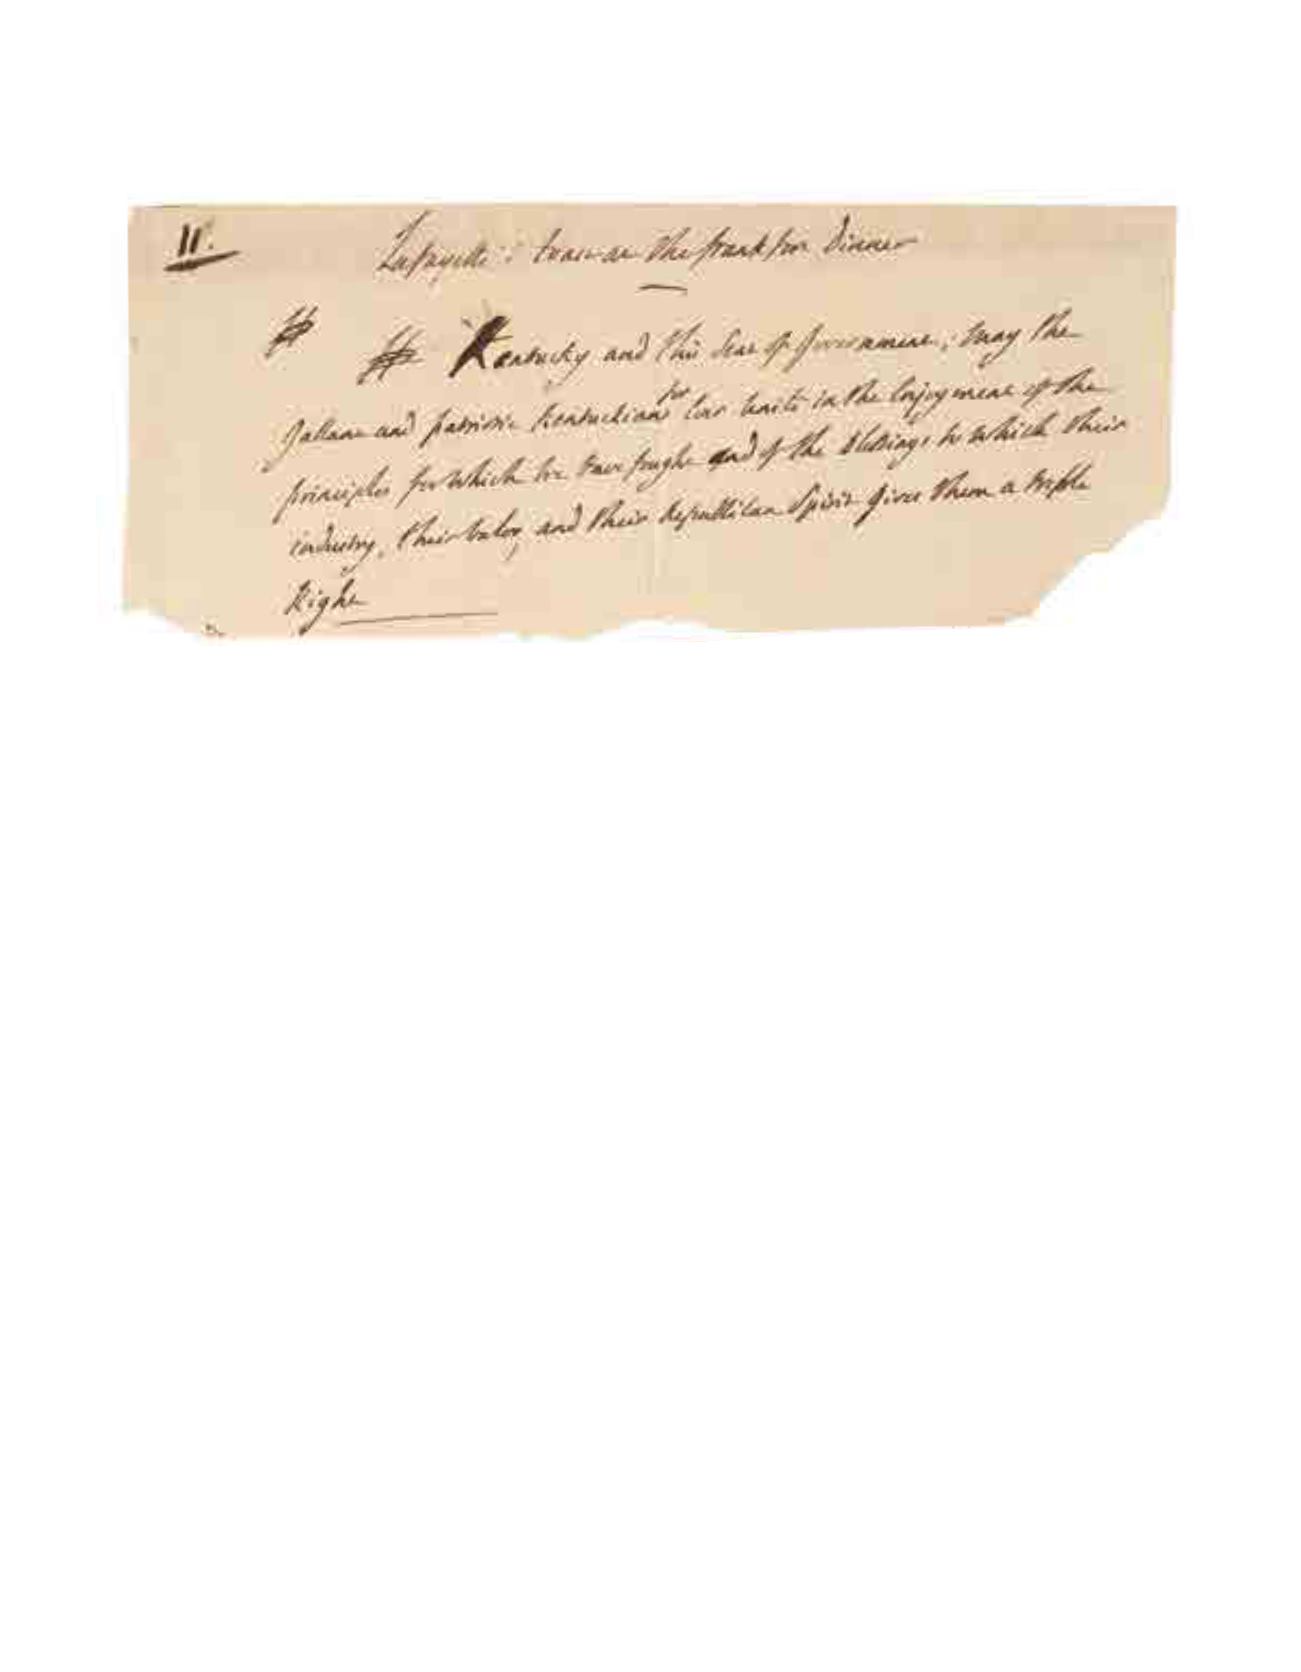 11.
Lafayette's toast at the frankfort Dinner
# # Kentucky and this Seat of Government; may the
Gallant and patriotic Kentuckians for Ever unite in the Enjoyment of the
principles for Which we have fought and of the blessings to Which their
industry, their valor, and their Republican Spirit gives them a triple
Right